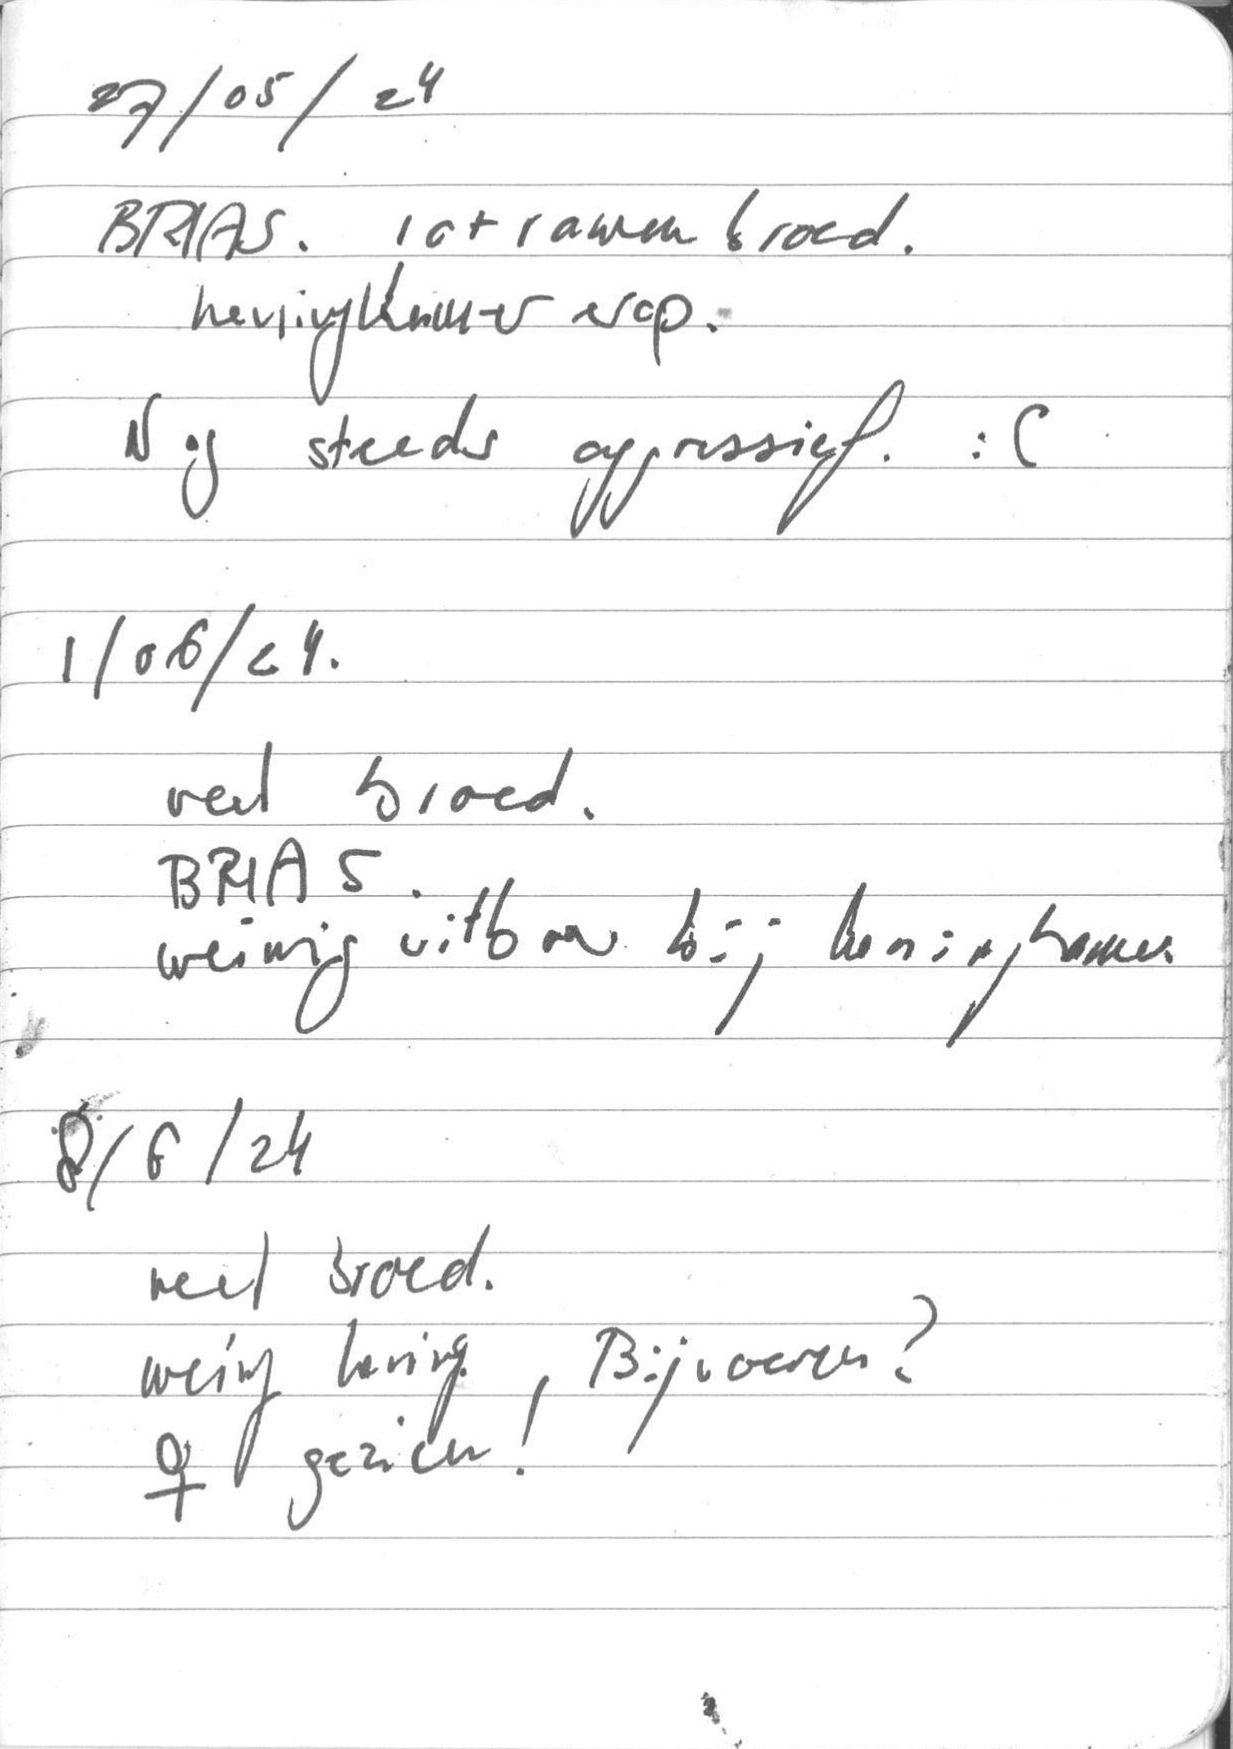 27/05/24
BRIAS. 10 + ramen broed.
honingkamer erop.
Nog steeds aggressief. :(
1/06/24.
veel broed.
BRIAS.
weinig uitbouw bij honingkamer
8/6/24
veel broed.
weinig honing, Bijvoeren?
♀ gezien!